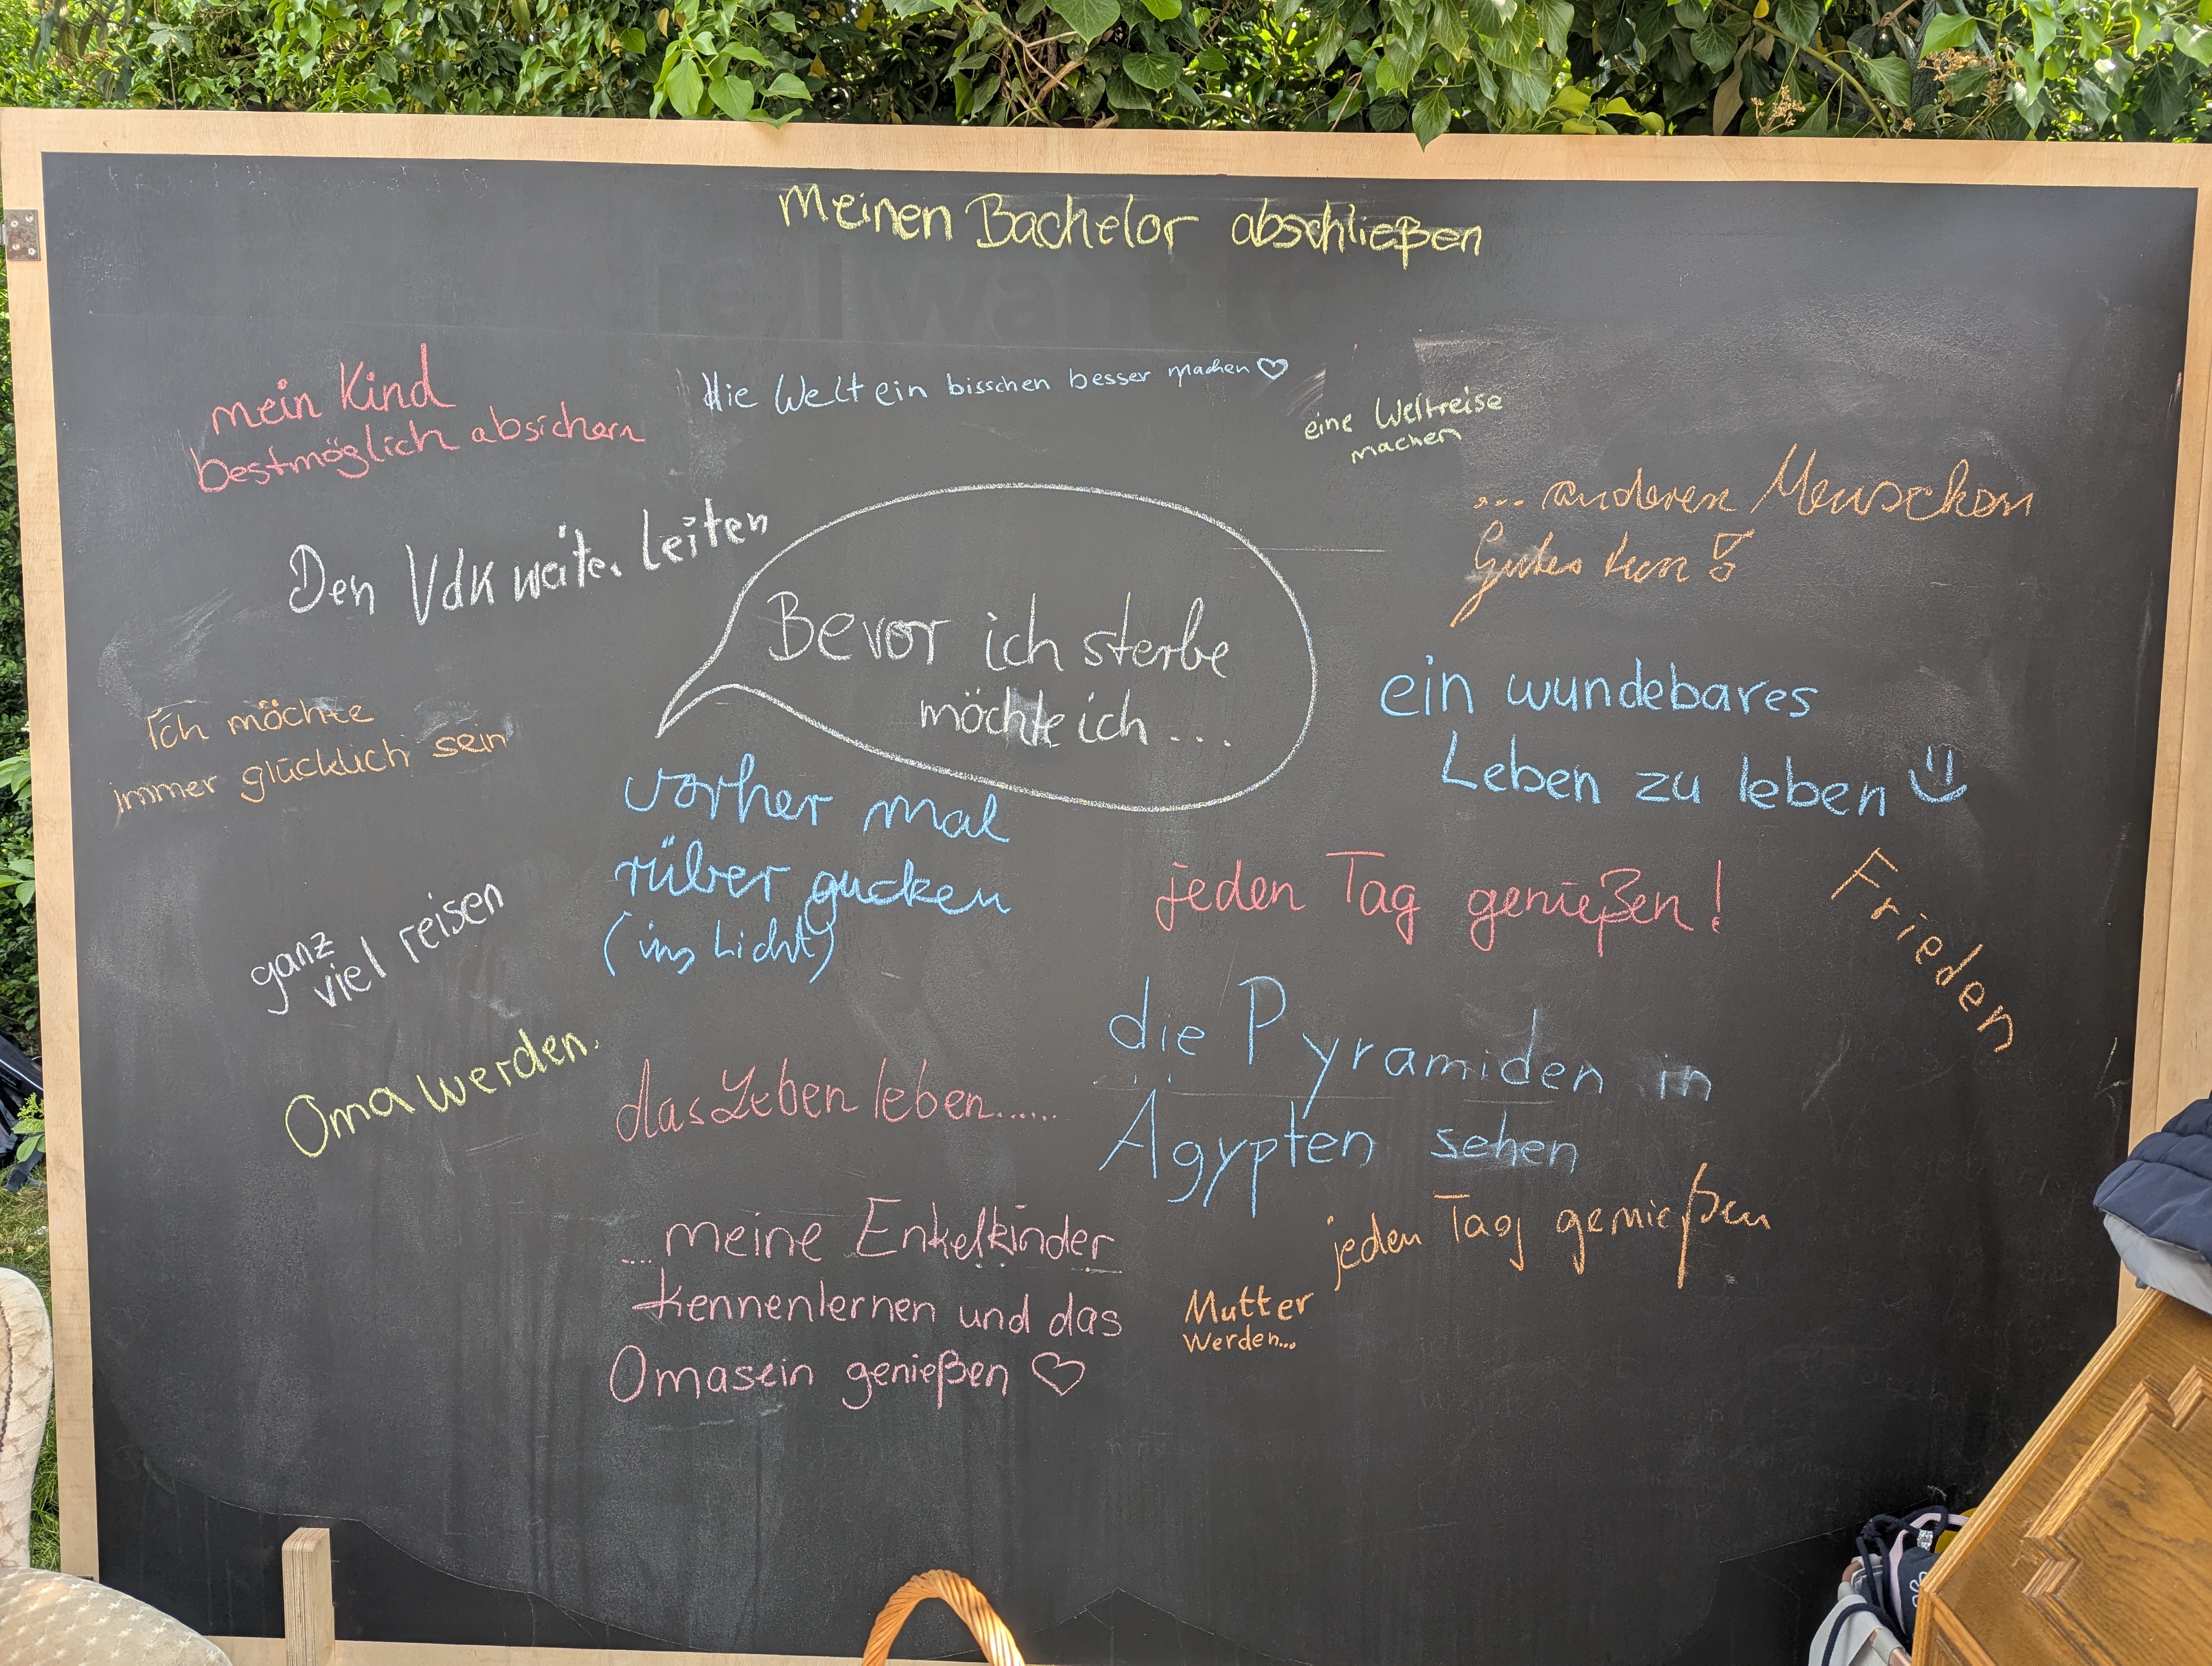 Meinen Bachelor abschließen
I want to
mein Kind
bestmöglich absichern
die Welt ein bisschen besser machen ♡
eine Weltreise
machen
... anderen Menschen
Gutes tun!
Den VdK weiter leiten
Bevor ich sterbe
möchte ich ...
ein wundebares
Leben zu leben
Ich möchte
immer glücklich sein
vorher mal
rüber gucken
(ins Licht)
jeden Tag genießen!
Frieden
ganz
viel reisen
die Pyramiden in
Ägypten sehen
Oma werden.
das Leben leben......
jeden Tag genießen
... meine Enkelkinder
kennenlernen und das
Omasein genießen ♡
Mutter
werden...